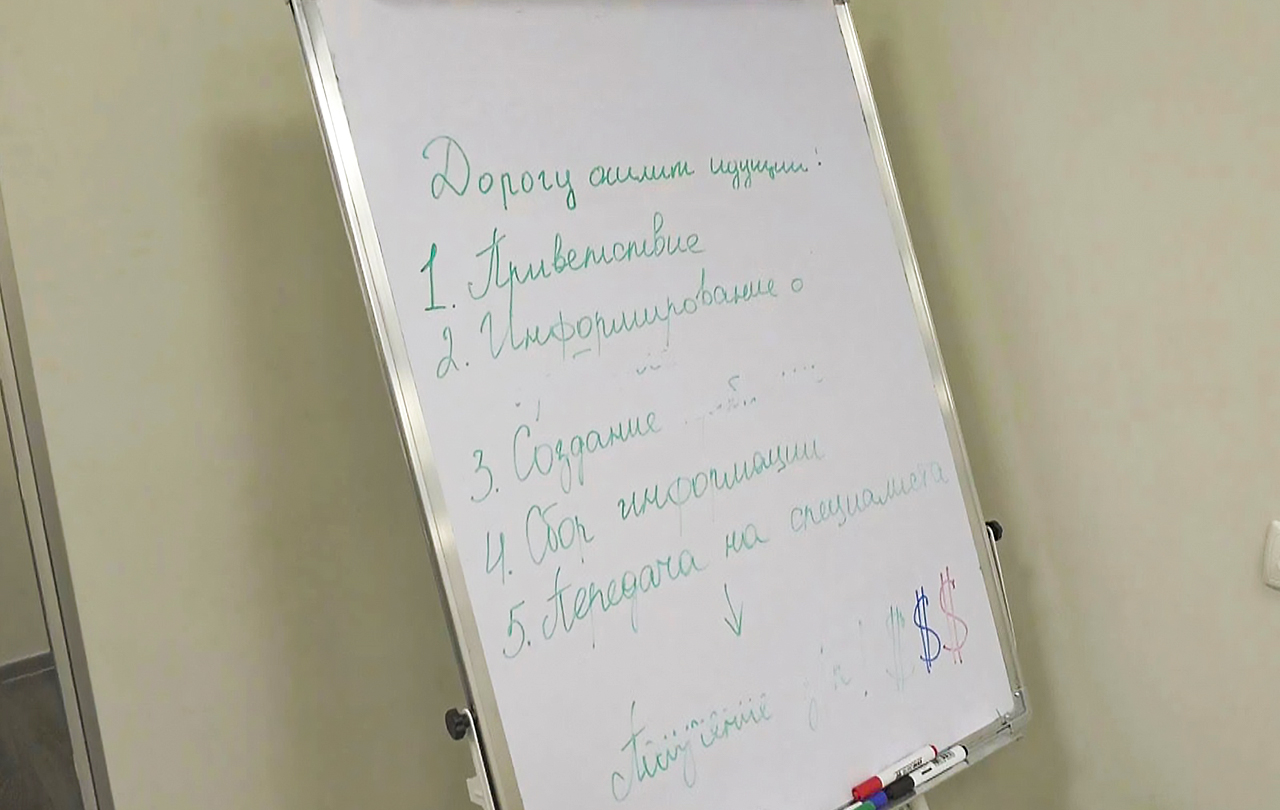 Дорогу осилит идущий!
1. Приветствие
2. Информирование о
3. Создание
4. Сбор информации
5. Передача на специалиста
↓
Получение з/п! $ $ $